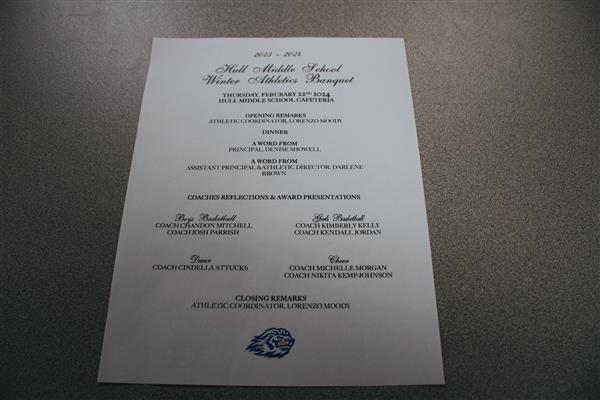 2023 - 2024
Hull Middle School
Winter Athletics Banquet
THURSDAY, FEBURARY 22ND 2024
HULL MIDDLE SCHOOL CAFETERIA
OPENING REMARKS
ATHLETIC COORDINATOR, LORENZO MOODY
DINNER
A WORD FROM
PRINCIPAL, DENISE SHOWELL
A WORD FROM
ASSISTANT PRINCIPAL & ATHLETIC DIRECTOR, DARLENE
BROWN
COACHES REFLECTIONS & AWARD PRESENTATIONS
Boys Basketball
COACH CHANDON MITCHELL
COACH JOSH PARRISH
Girls Basketball
COACH KIMBERLY KELLY
COACH KENDALL JORDAN
Dance
COACH CINDELLA ATTUCKS
Cheer
COACH MICHELLE MORGAN
COACH NIKITA KEMP-JOHNSON
CLOSING REMARKS
ATHLETIC COORDINATOR, LORENZO MOODY